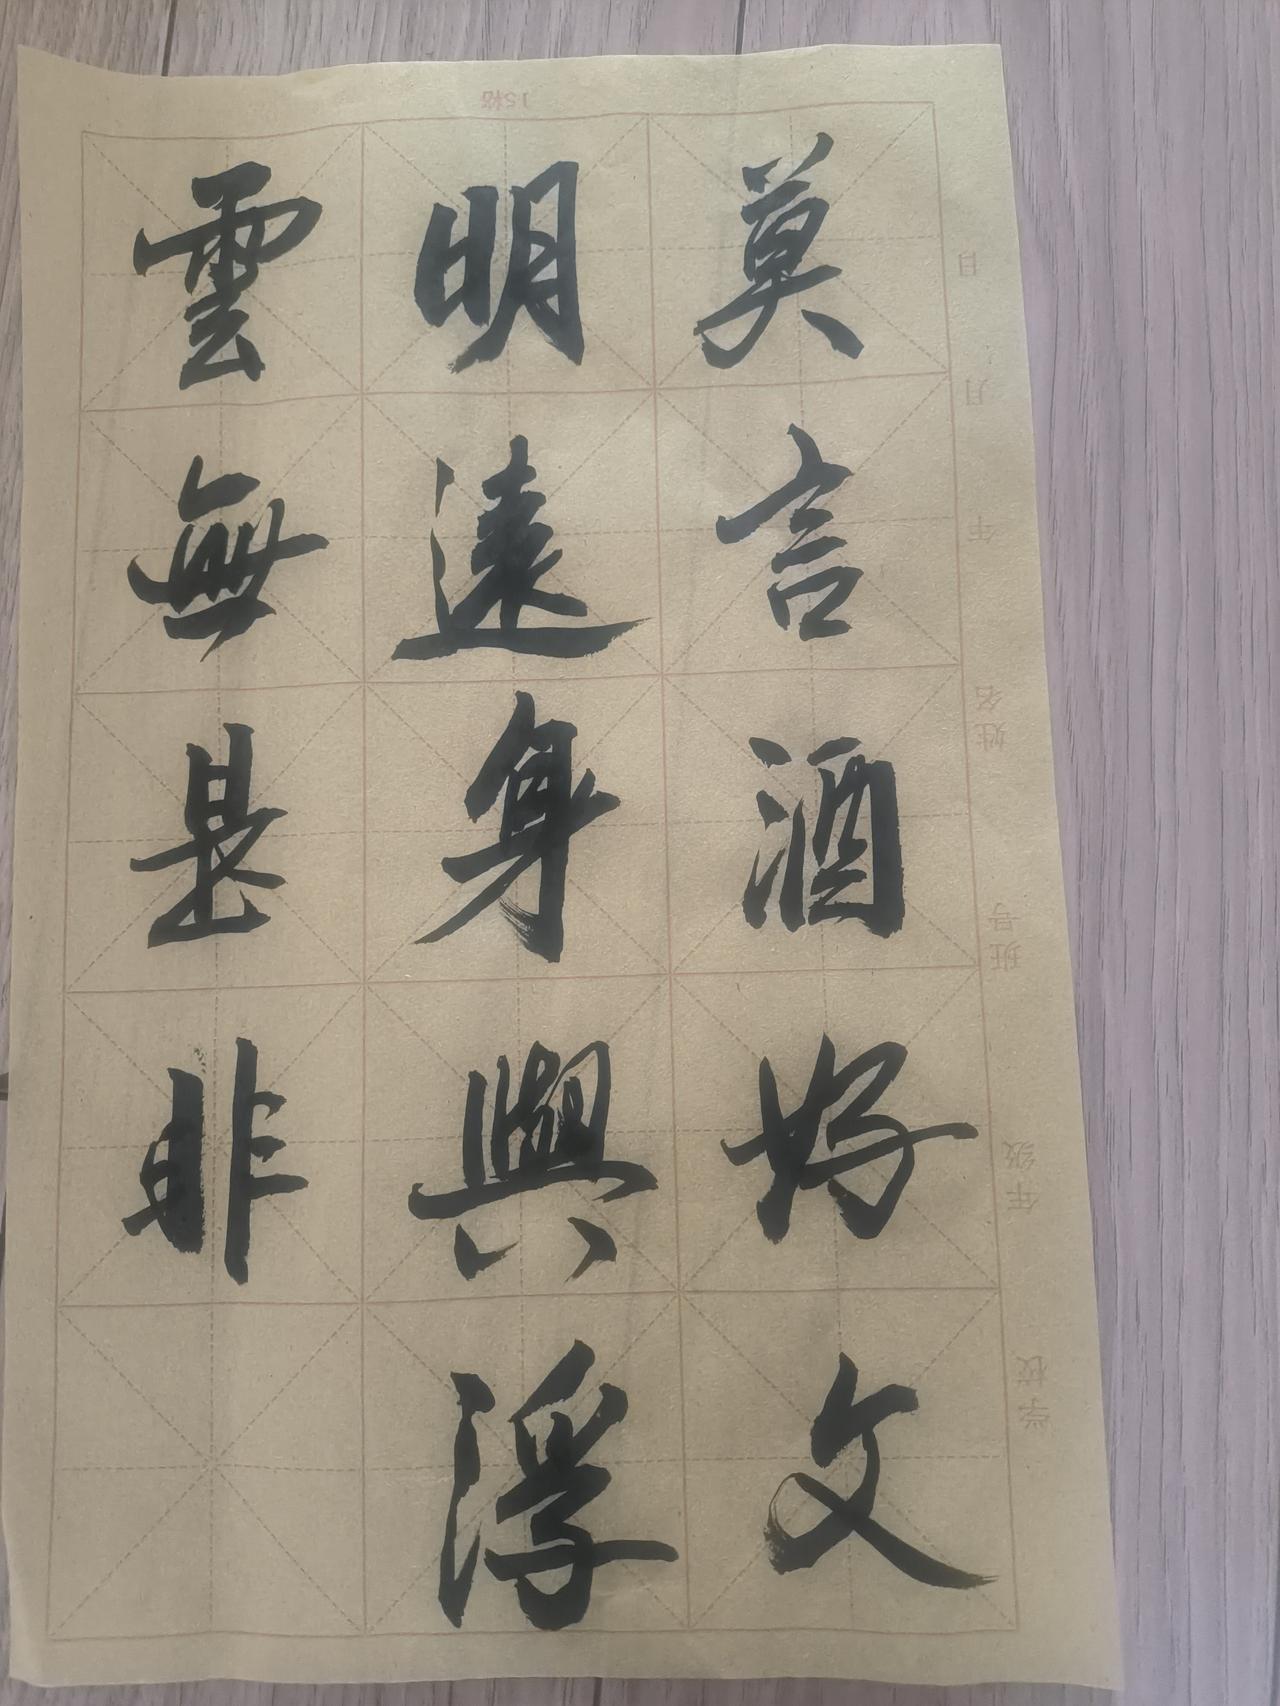 莫言酒好文
明遠身與浮
雲無是非
15格
学校
年级
班号
姓名
年 月 日